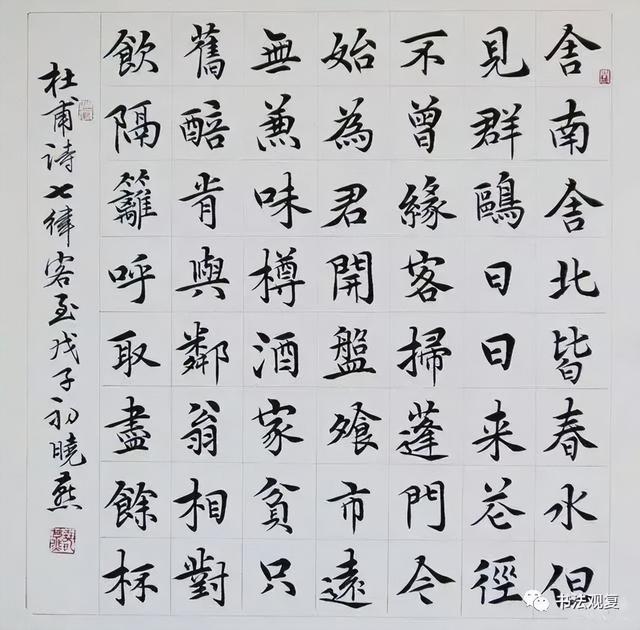 舍南舍北皆春水但
見群鷗日日来花徑
不曾緣客掃蓬門今
始為君開盤飧市遠
無兼味樽酒家貧只
舊醅肯與鄰翁相對
飲隔籬呼取盡餘杯
杜甫詩七律客至戊子初曉燕
书法观复